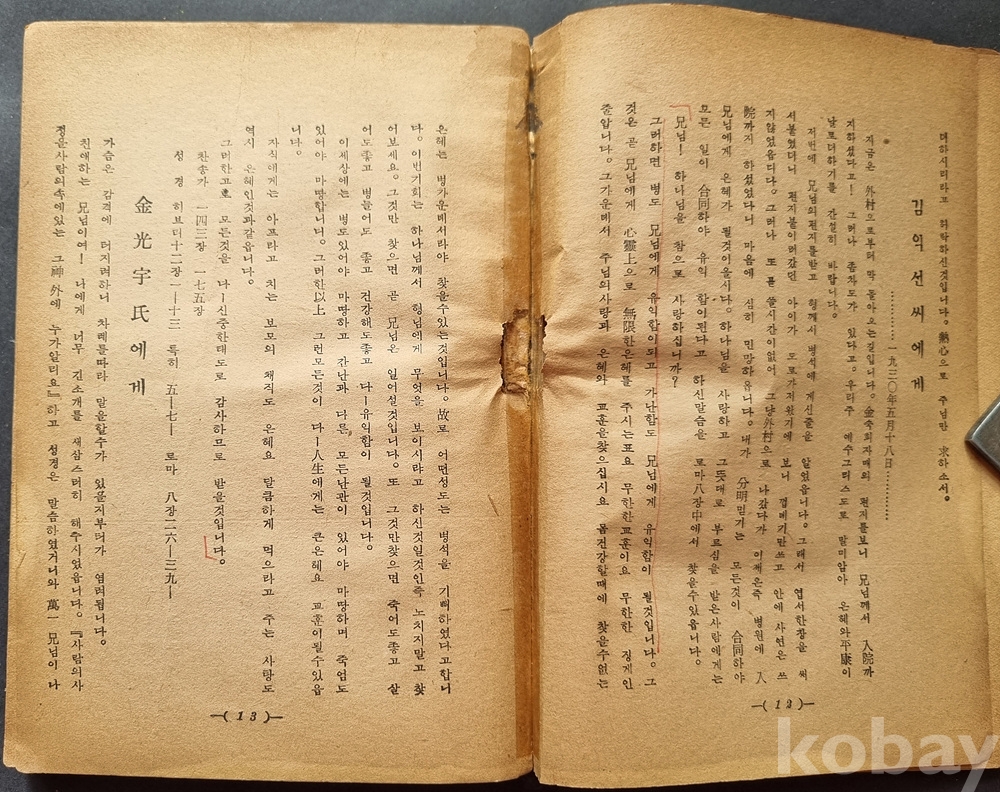 대하시리라고 허락하신것입니다。熱心으로 주님만 求하소서。
…………一九三○年五月十八日…………
김익선씨에게
지금은 外村으로부터 막 돌아오는길입니다。金축회자매의 편지를보니 兄님께서 入院까
지하섰다고! 그러나 좀차도가 있다고。우리주 예수그리스도로 말미암아 은혜와平康이
날로더하기를 간절히 바랍니다。
저번에 兄님의편지를받고 형께서 병석에 계신줄을 알었읍니다。그래서 엽서한장을 써
서붙였더니 편지붙이러갔던 아이가 도로가저웠기에 보니 껍메기만쓰고 안에 사연은 쓰
지않었읍디다。그러나 또 쓸시간이없어 그냥外村으로 나갔다가 이제온즉 병원에 入
院까지 하섰었다니 마음에 심히 민망하유니다。내가 分明믿기는 모든것이 合同하야
兄님에게 은혜가 될것이올시다。하나님을 사랑하고 그뜻대로 부르심을 받은사람에게는
모든 일이 合同하야 유익 함이된다고 하신말슴을 로마八장中에서 찾을수있읍니다。
兄님! 하나님을 참으로 사랑하십니까?
그러하면 병도 兄님에게 유익함이되고 가난함도 兄님에게 유익함이 될것입니다。그
것은 곧 兄님에게 心靈上으로 無限한은혜를 주시는표요 무한한교훈이요 무한한 징게인
줄압니다。그가운데서 주님의사랑과 은혜와 교훈을찾으십시요 몸건강할때에 찾을수없는
—(12)—
은혜는 병가운데서라야 찾을수있는것입니다。故로 어떤성도는 병석을 기뻐하였다고합니
다。이번기회는 하나님께서 형님에게 무엇을 보이시랴고 하신것일것인즉 노치지말고 찾
어보세요。그것만 찾으면 곧 兄님은 일어설것입니다。또 그것만찾으면 죽어도좋고 살
어도좋고 병들어도 좋고 건강해도좋고 다—유익함이 될것입니다。
이세상에는 병도있어야 마땅하고 간난과 다른 모든난관이 있어야 마땅하며 죽엄도
있어야 마땅합니다。그러한以上 그런모든것이 다—人生에게는 큰은혜요 교훈이될수있읍
니다。
자식에게는 아프라고 치는 보모의 채직도 은혜요 달콤하게 먹으라고 주는 사탕도
역시 은혜인것과같읍니다。
그러한고로 모든것을 나—신중한태도로 감사하므로 받을것입니다。
찬송가 一四三장 一七五장
성경 히브터十二장 一—十三 특히 五—七— 로마 八장二六—三九—
金光宇氏에게
가슴은 감격에 터지려하니 차례를따라 말을할수가 있을지부터가 염려됩니다。
친애하는 兄님이여! 나에게 너무 긴소개를 새삼스러히 해주시었읍니다。『사람의사
정을사람의속에있는 그神外에 누가알리요』하고 성경은 말슴하였거니와 萬一 兄님이 나
—(13)—
kobay